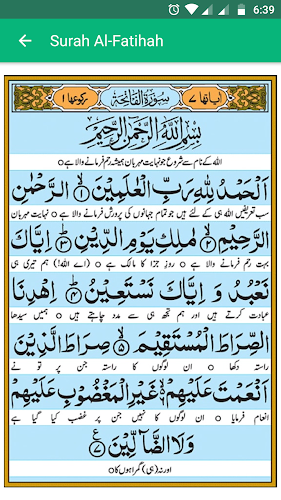 6:39
Surah Al-Fatihah
اٰیاتها ٧ سُوْرَةُ الْفَاتِحَةِ رکوعها ١
بِسْمِ اللّٰهِ الرَّحْمٰنِ الرَّحِيْمِ
اللہ کے نام سے شروع جو نہایت مہربان ہمیشہ رحم فرمانے والا ہے ○
اَلْحَمْدُ لِلّٰهِ رَبِّ الْعٰلَمِيْنَ ۙ﴿١﴾ الرَّحْمٰنِ
سب تعریفیں اللہ ہی کے لئے ہیں جو تمام جہانوں کی پرورش فرمانے والا ہے ○ نہایت مہربان
الرَّحِيْمِ ۙ﴿٢﴾ مٰلِكِ يَوْمِ الدِّيْنِ ؕ﴿٣﴾ اِيَّاكَ
بہت رحم فرمانے والا ہے ○ روزِ جزا کا مالک ہے ○ (اے اللہ!) ہم تیری ہی
نَعْبُدُ وَ اِيَّاكَ نَسْتَعِيْنُ ؕ﴿٤﴾ اِهْدِنَا
عبادت کرتے ہیں اور ہم تجھ ہی سے مدد چاہتے ہیں ○ ہمیں سیدھا
الصِّرَاطَ الْمُسْتَقِيْمَ ۙ﴿٥﴾ صِرَاطَ الَّذِيْنَ
راستہ دکھا ○ ان لوگوں کا راستہ جن پر تو نے
اَنْعَمْتَ عَلَيْهِمْ ۙ﴿٦﴾ غَيْرِ الْمَغْضُوْبِ عَلَيْهِمْ
انعام فرمایا ○ ان لوگوں کا نہیں جن پر غضب کیا گیا ہے
وَلَا الضَّآلِّيْنَ ﴿٧﴾
اور نہ (ہی) گمراہوں کا ○